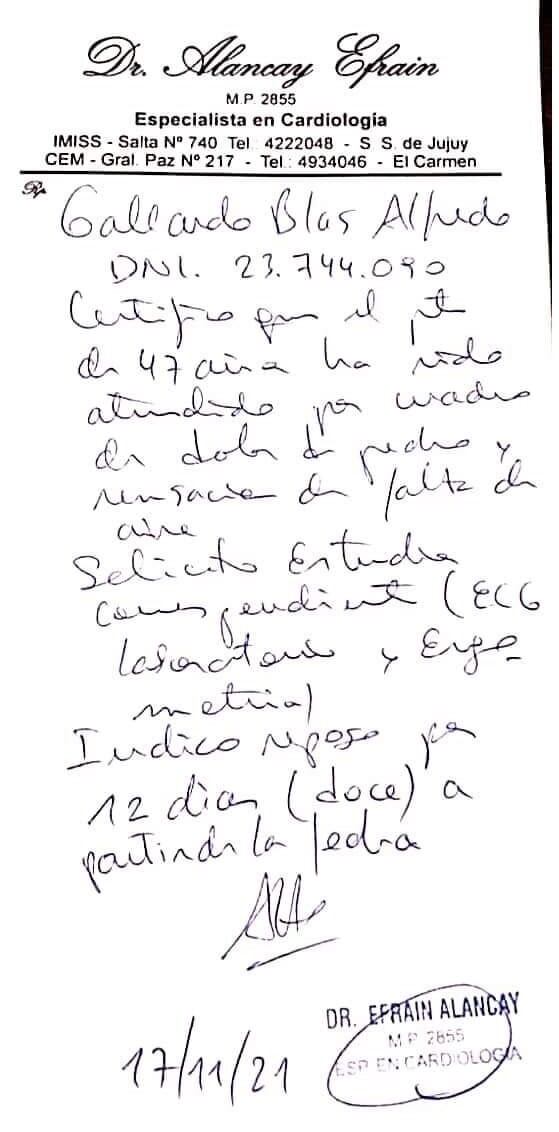 Dr. Alancay Efrain
M.P. 2855
Especialista en Cardiología
IMISS - Salta Nº 740 Tel.: 4222048 - S. S. de Jujuy
CEM - Gral. Paz Nº 217 - Tel.: 4934046 - El Carmen
Rp.
Gallardo Blas Alfredo
DNI. 23.744.090
Certifico que el pte
de 47 años ha sido
atendido por cuadro
de dolor de pecho y
sensación de falta de
aire
Solicito Estudios
correspondiente (ECG
Laboratorio y Ergo-
metria)
Indico reposo por
12 dias (doce) a
partir de la fecha
DR. EFRAIN ALANCAY
M.P. 2855
ESP. EN CARDIOLOGIA
17/11/21